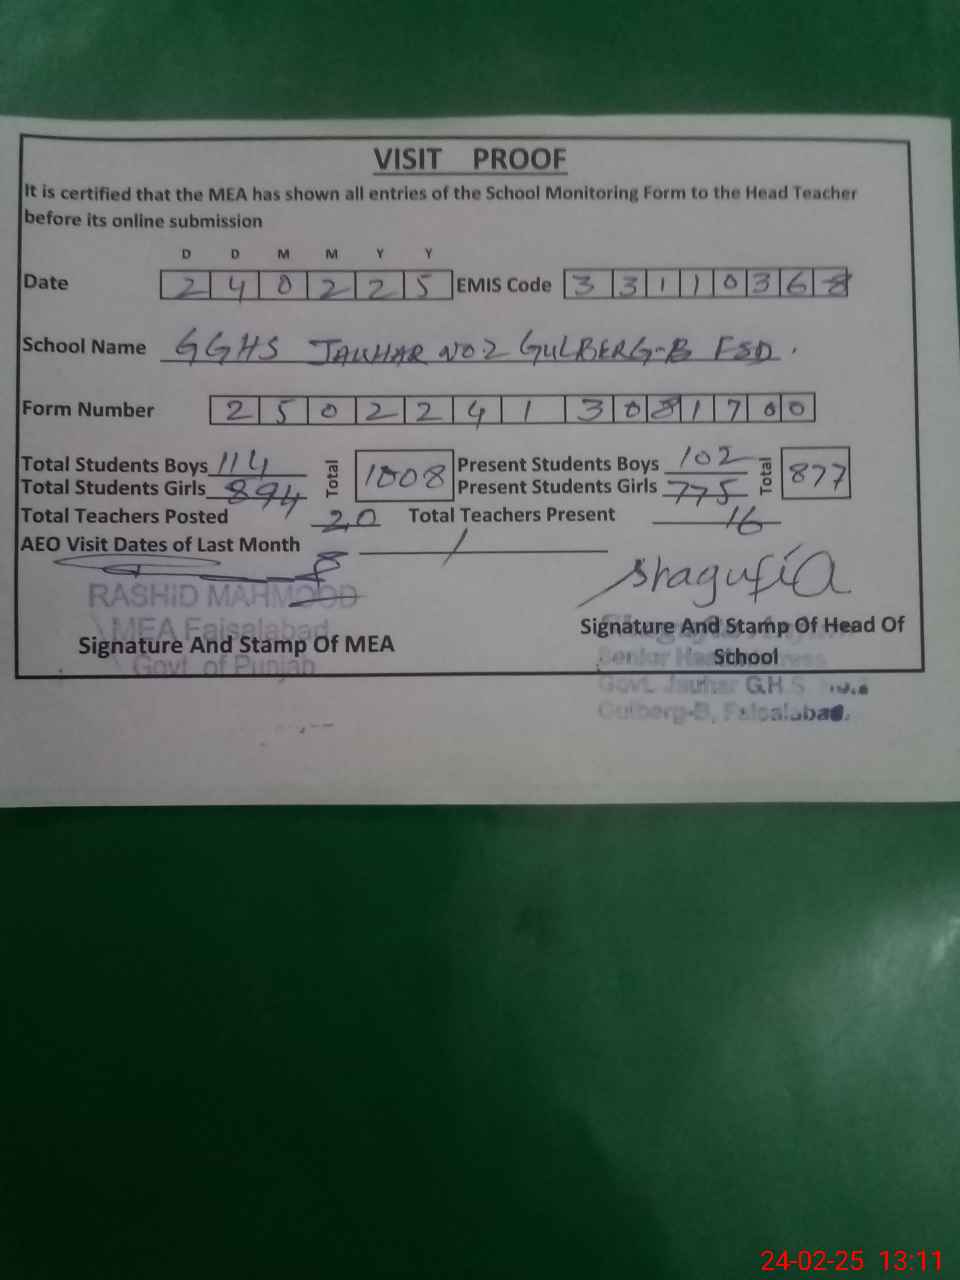 VISIT PROOF
It is certified that the MEA has shown all entries of the School Monitoring Form to the Head Teacher
before its online submission
D D M M Y Y
Date 2 4 0 2 2 5 EMIS Code 3 3 1 1 0 3 6 8
School Name GGHS JAUHAR NO 2 GULBERG-B FSD.
Form Number 2 5 0 2 2 4 1 3 0 8 1 7 0 0
Total Students Boys 114 Total 1008 Present Students Boys 102 Total 877
Total Students Girls 894 Present Students Girls 775
Total Teachers Posted 20 Total Teachers Present 16
AEO Visit Dates of Last Month /
Shagufta
RASHID MAHMOOD
MEA Faisalabad
Govt. of Punjab
Signature And Stamp Of MEA
Signature And Stamp Of Head Of
School
Senior Headmistress
Govt. Jauhar G.H.S No.2
Gulberg-B, Faisalabad.
24-02-25 13:11